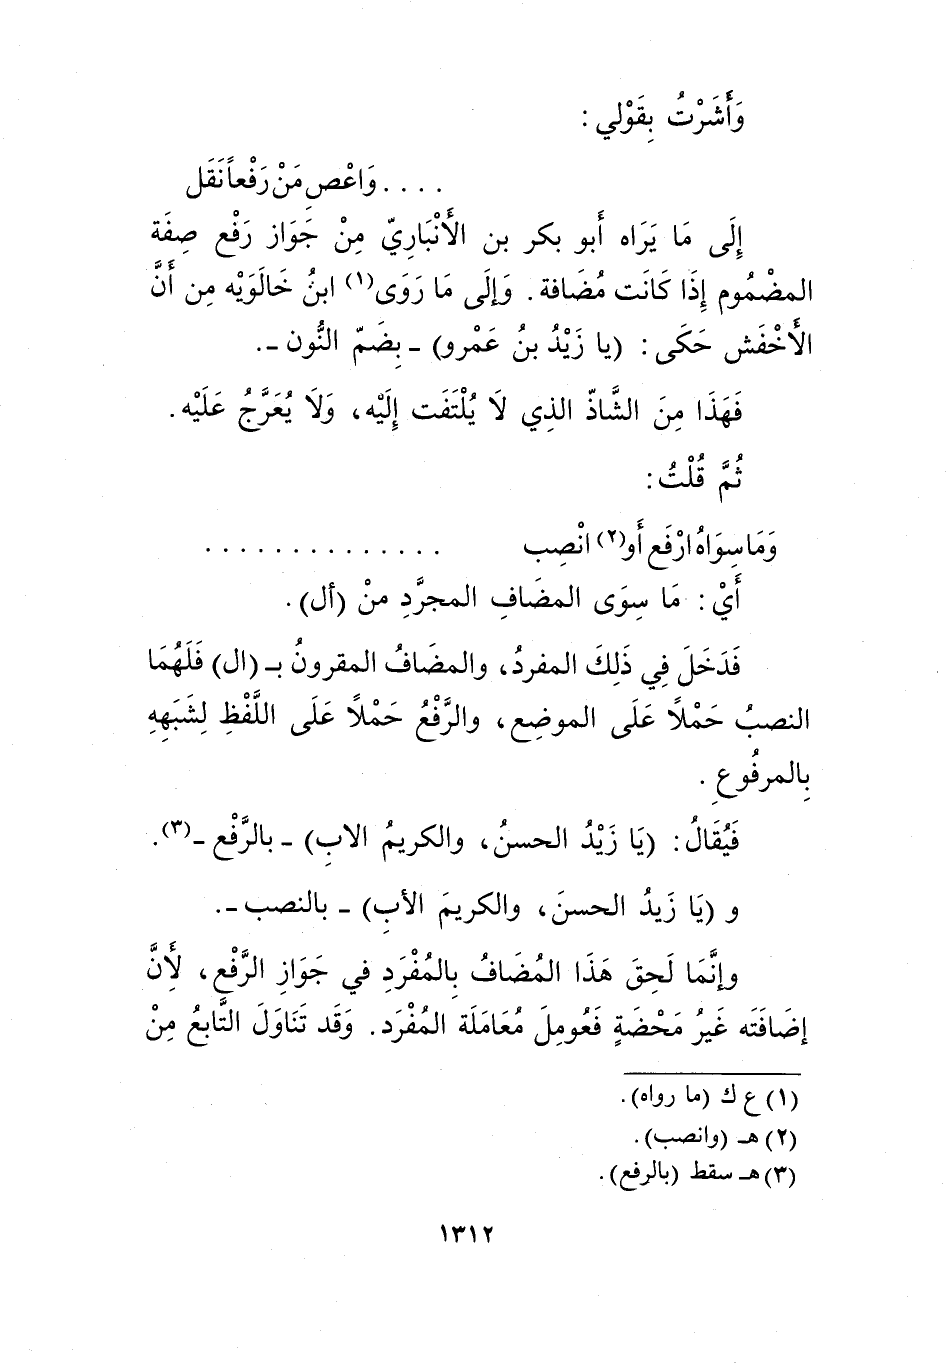 وَأَشَرْتُ بِقَوْلي :
. . . . وَاعْصِ مَنْ رَفْعاً نَقَل
إِلَى مَا يَرَاه أَبو بكر بن الأَنْبَارِيّ مِنْ جَوَاز رَفْع صِفَة
المضْمُوم إِذَا كَانَت مُضَافة. وَإِلَى مَا رَوَى(١) ابنُ خَالَوَيْه مِن أَنَّ
الأَخْفَش حَكَى: (يا زَيْدُ بنُ عَمْرو) ـ بِضَمّ النُّون ـ.
فَهَذَا مِنَ الشَّاذّ الذِي لَا يُلْتَفَت إِلَيْه، وَلَا يُعَرَّجُ عَلَيْه.
ثُمَّ قُلْتُ:
وَمَا سِوَاهُ ارْفَع أَو(٢) انْصِب . . . . . . . . . . . . . .
أَيْ: مَا سِوَى المضَافِ المجرَّدِ منْ (أل).
فَدَخَلَ فِي ذَلِكَ المفردُ، والمضَافُ المقرونُ بـ (ال) فَلَهُمَا
النصبُ حَمْلاً عَلَى الموضِع، والرَّفْعُ حَمْلاً عَلَى اللَّفْظِ لِشَبَهِهِ
بِالمرفُوعِ.
فَيُقَالُ: (يَا زَيْدُ الحسنُ، والكريمُ الابِ) ـ بالرَّفْع ـ(٣).
و (يَا زَيدُ الحسنَ، والكريمَ الأبِ) ـ بالنصب ـ.
وإنَّمَا لَحِقَ هَذَا المُضَافُ بِالمُفْرَدِ في جَوَازِ الرَّفْع، لأَنَّ
إضَافَتَه غَيرُ مَحْضَةٍ فَعُومِلَ مُعَامَلَة المُفْرَد. وَقَد تَنَاوَلَ التَّابعُ مِنْ
(١) ع ك (ما رواه).
(٢) هـ (وانصب).
(٣) هـ سقط (بالرفع).
١٣١٢